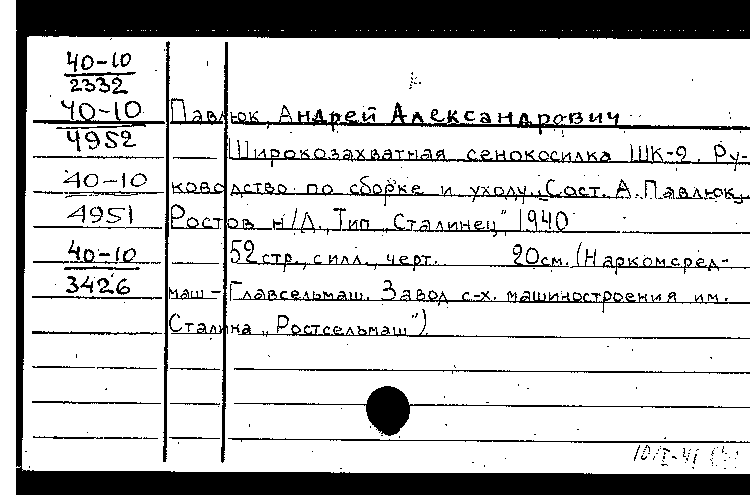 40-10
2332
40-10
4952
40-10
4951
40-10
3426
Павлюк, Андрей Александрович
Широкозахватная сенокосилка ШК-2. Ру-
ководство по сборке и уходу. Сост. А. Павлюк.
Ростов н/Д., Тип „Сталинец", 1940
52 стр., с илл., черт. 20 см. (Наркомсред-
маш - Главсельмаш. Завод с-х. машиностроения им.
Сталина „Ростсельмаш")
10/I-41